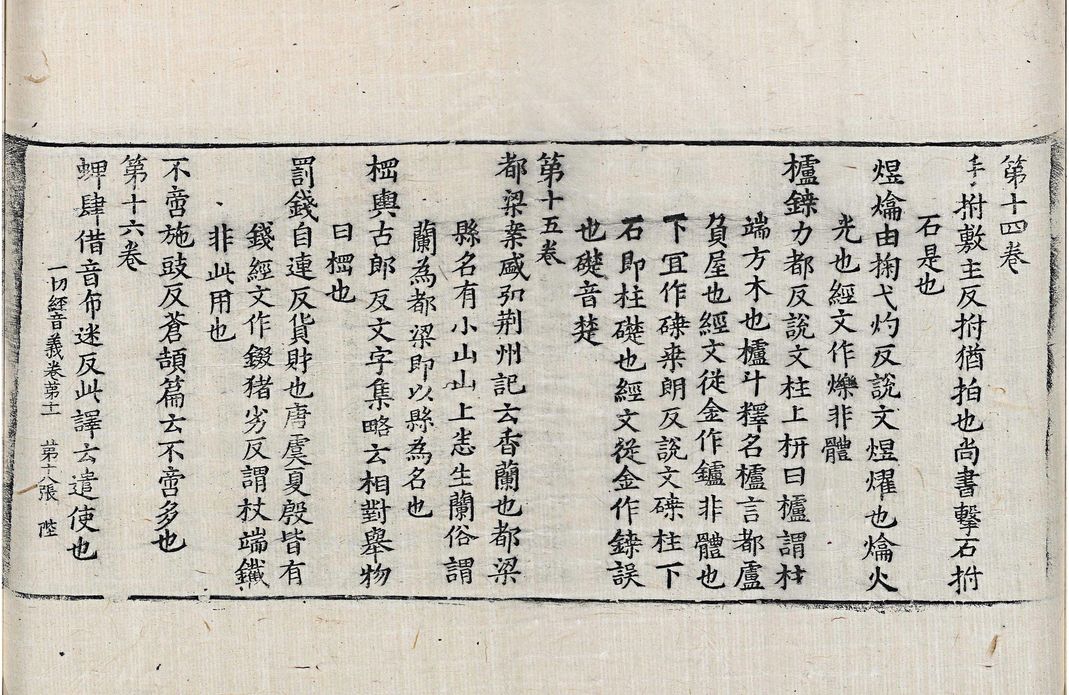 第十四卷
手拊敷主反拊猶拍也尚書擊石拊
石是也
煜爚由掬弋灼反說文煜燿也爚火
光也經文作爍非體
櫨鍊力都反說文柱上枅曰櫨謂柱
端方木也櫨斗釋名櫨言都盧
負屋也經文從金作鑪非體也
下冝作磉桒朗反說文磉柱下
石即柱礎也經文從金作鍊誤
也礎音楚
第十五卷
都梁案盛弘荆州記云香蘭也都梁
縣名有小山山上悉生蘭俗謂
蘭為都梁即以縣為名也
棡輿古郎反文字集略云相對舉物
曰棡也
罰錢自連反貨財也唐虞夏殷皆有
錢經文作錣猪劣反謂杖端鐵
非此用也
不啻施豉反蒼頡篇云不啻多也
第十六卷
蜱肆借音布迷反此譯云遣使也
一切經音義卷第十一 第十八張 陛